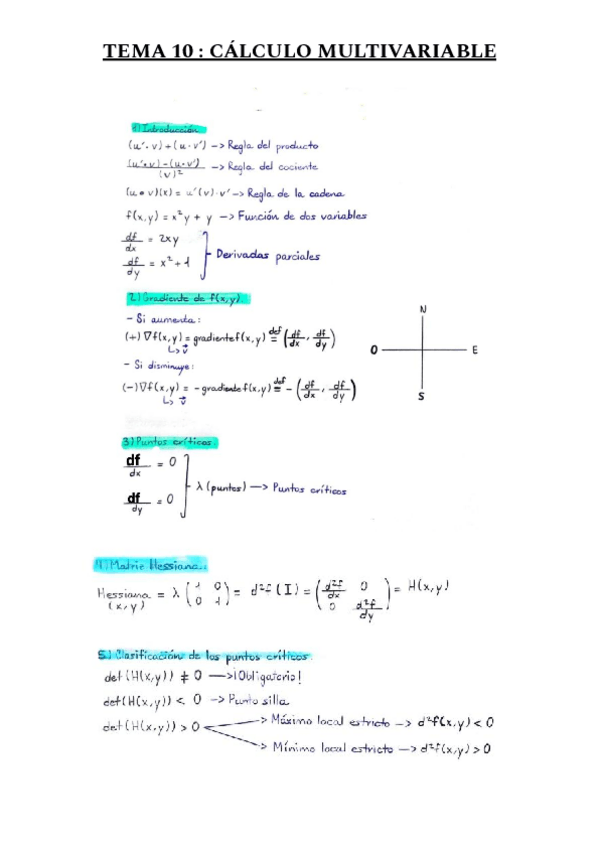 TEMA 10 : CÁLCULO MULTIVARIABLE
1) Introducción
(u'·v)+(u·v') -> Regla del producto
(u'·v)-(u·v')/(v)² -> Regla del cociente
(u∘v)(x) = u'(v)·v' -> Regla de la cadena
f(x,y) = x²y + y -> Función de dos variables
df/dx = 2xy
df/dy = x²+1
Derivadas parciales
2) Gradiente de f(x,y).
- Si aumenta:
(+) ∇f(x,y) = gradiente f(x,y) def= (df/dx, df/dy)
↳ v⃗
- Si disminuye:
(-) ∇f(x,y) = - gradiente f(x,y) def= - (df/dx, df/dy)
↳ v⃗
N
O E
S
3) Puntos críticos.
df/dx = 0
df/dy = 0
λ (puntos) -> Puntos críticos
4) Matriz Hessiana.
Hessiana (x,y) = λ (1 0 0 1) = d²f (I) = (d²f/dx 0 0 d²f/dy) = H(x,y)
5) Clasificación de los puntos críticos.
det(H(x,y)) ≠ 0 -> ¡Obligatorio!
det(H(x,y)) < 0 -> Punto silla
det(H(x,y)) > 0
-> Máximo local estricto -> d²f(x,y) < 0
-> Mínimo local estricto -> d²f(x,y) > 0